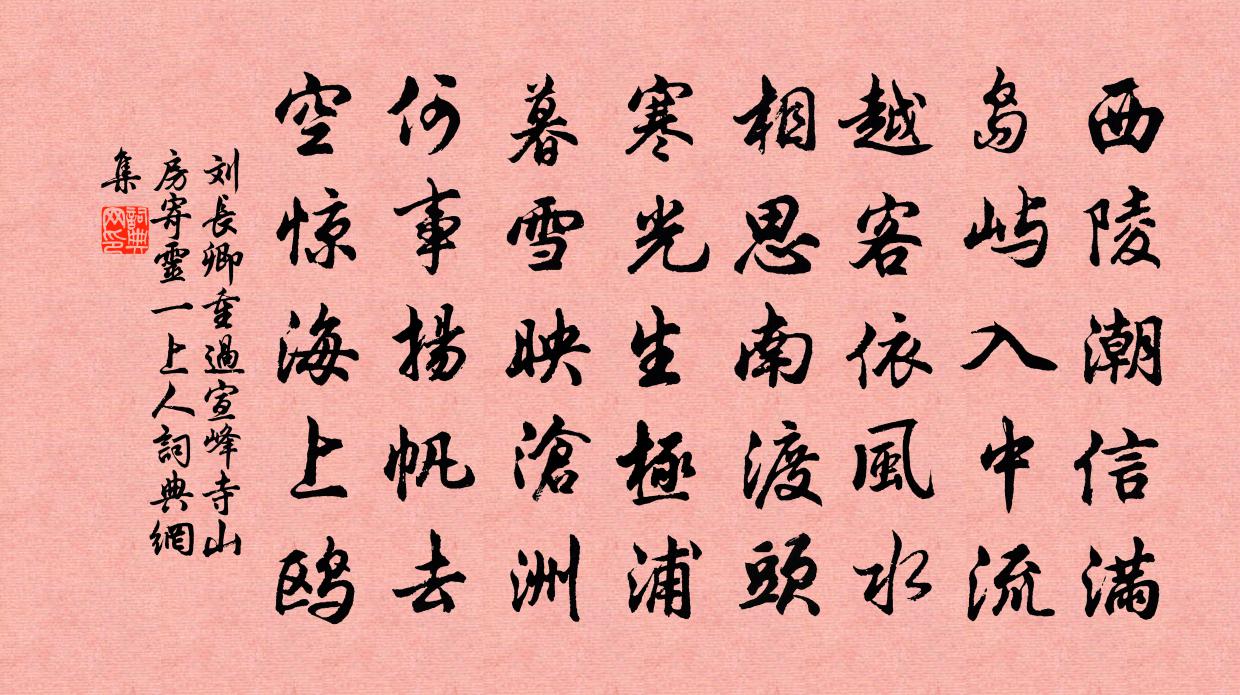 西陵潮信满
岛屿入中流
越客依風水
相思南渡頭
寒光生極浦
暮雪映滄洲
何事揚帆去
空惊海上鸥
刘長卿重過宣峰寺山
房寄靈一上人詞典網
集
詞典网印